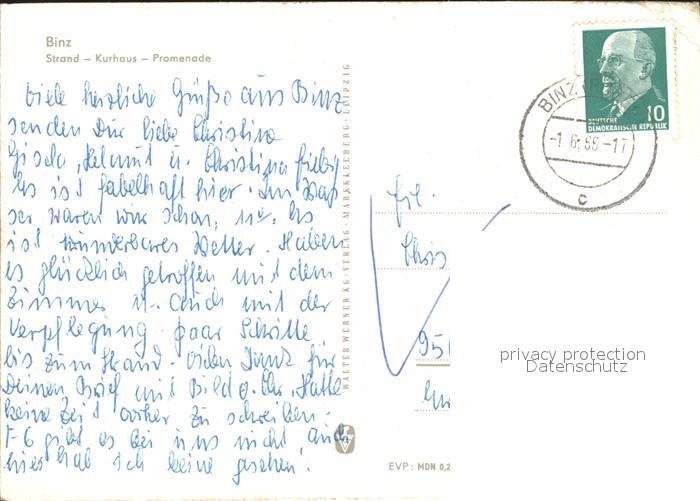 Binz
Strand – Kurhaus – Promenade
Viele herzliche Grüße aus Binz
senden Dir liebe Christina
Gisela, Helmut u. Christina
Es ist fabelhaft hier. Im Was
ser waren wir schon, u. Es
ist wunderbares Wetter. Haben
es glücklich getroffen mit dem
Zimmer u. auch mit der
Verpflegung. paar Schritte
bis zum Strand. vielen Dank für
Deinen Brief mit Bild. Hatte
keine Zeit vorher zu schreiben.
gibt es bei uns nicht, auch
hier hab ich keine gesehen.
WALTER WERNER KG · VERLAG · MARKKLEEBERG · LEIPZIG
EVP: MDN 0,2
BINZ
-1.6.66-17
c
10
DEUTSCHE
DEMOKRATISCHE REPUBLIK
Frl.
Chris
95
privacy protection
Datenschutz